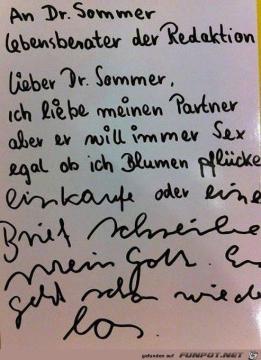 An Dr. Sommer
Lebensberater der Redaktion
Lieber Dr. Sommer,
ich liebe meinen Partner
aber er will immer Sex
egal ob ich Blumen pflücke
einkaufe oder eine
Brief schreibe
Mein Gott. Er
geht schon wiede
los.
gefunden auf FUNPOT.NET